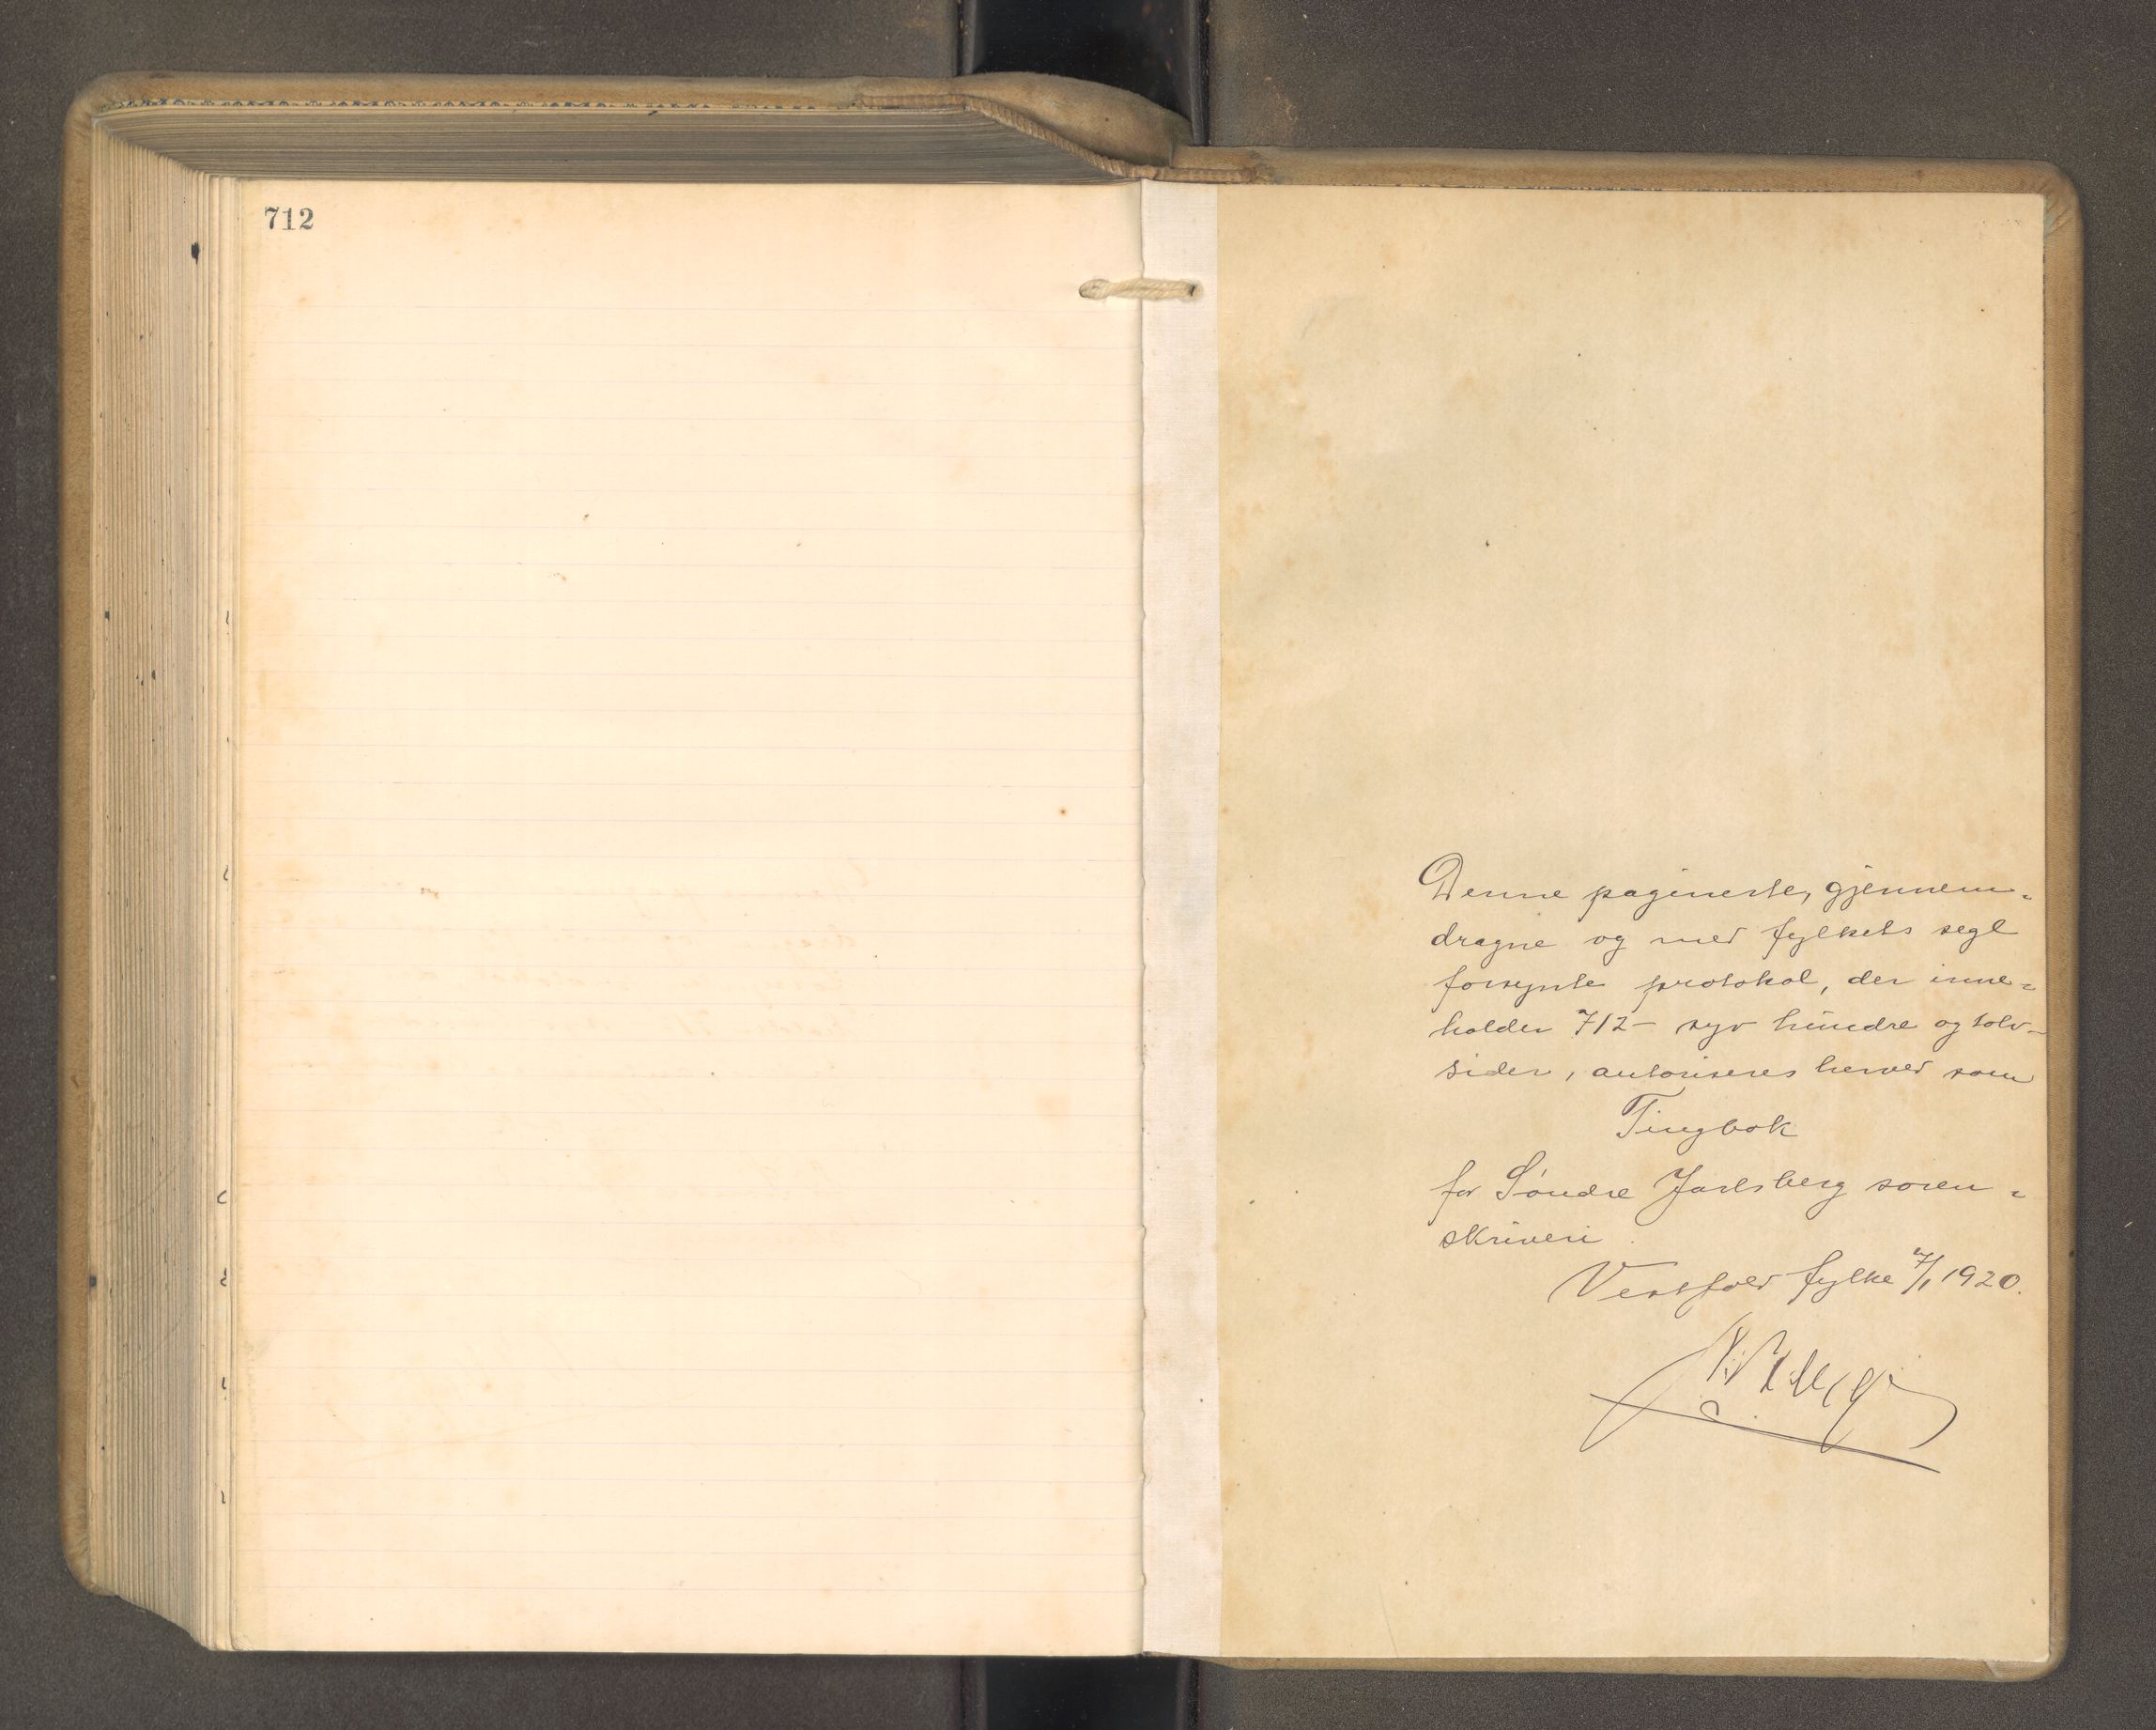 712
Denne paginerte, gjennem-
dragne og med fylkets segl
forsynte protokol, der inne-
holder 712 - syv hundre og tolv -
sider, autoriseres herved som
Tingbok
for Søndre Jarlsberg soren-
skriveri.
Vestfold fylke 7/1 1920.